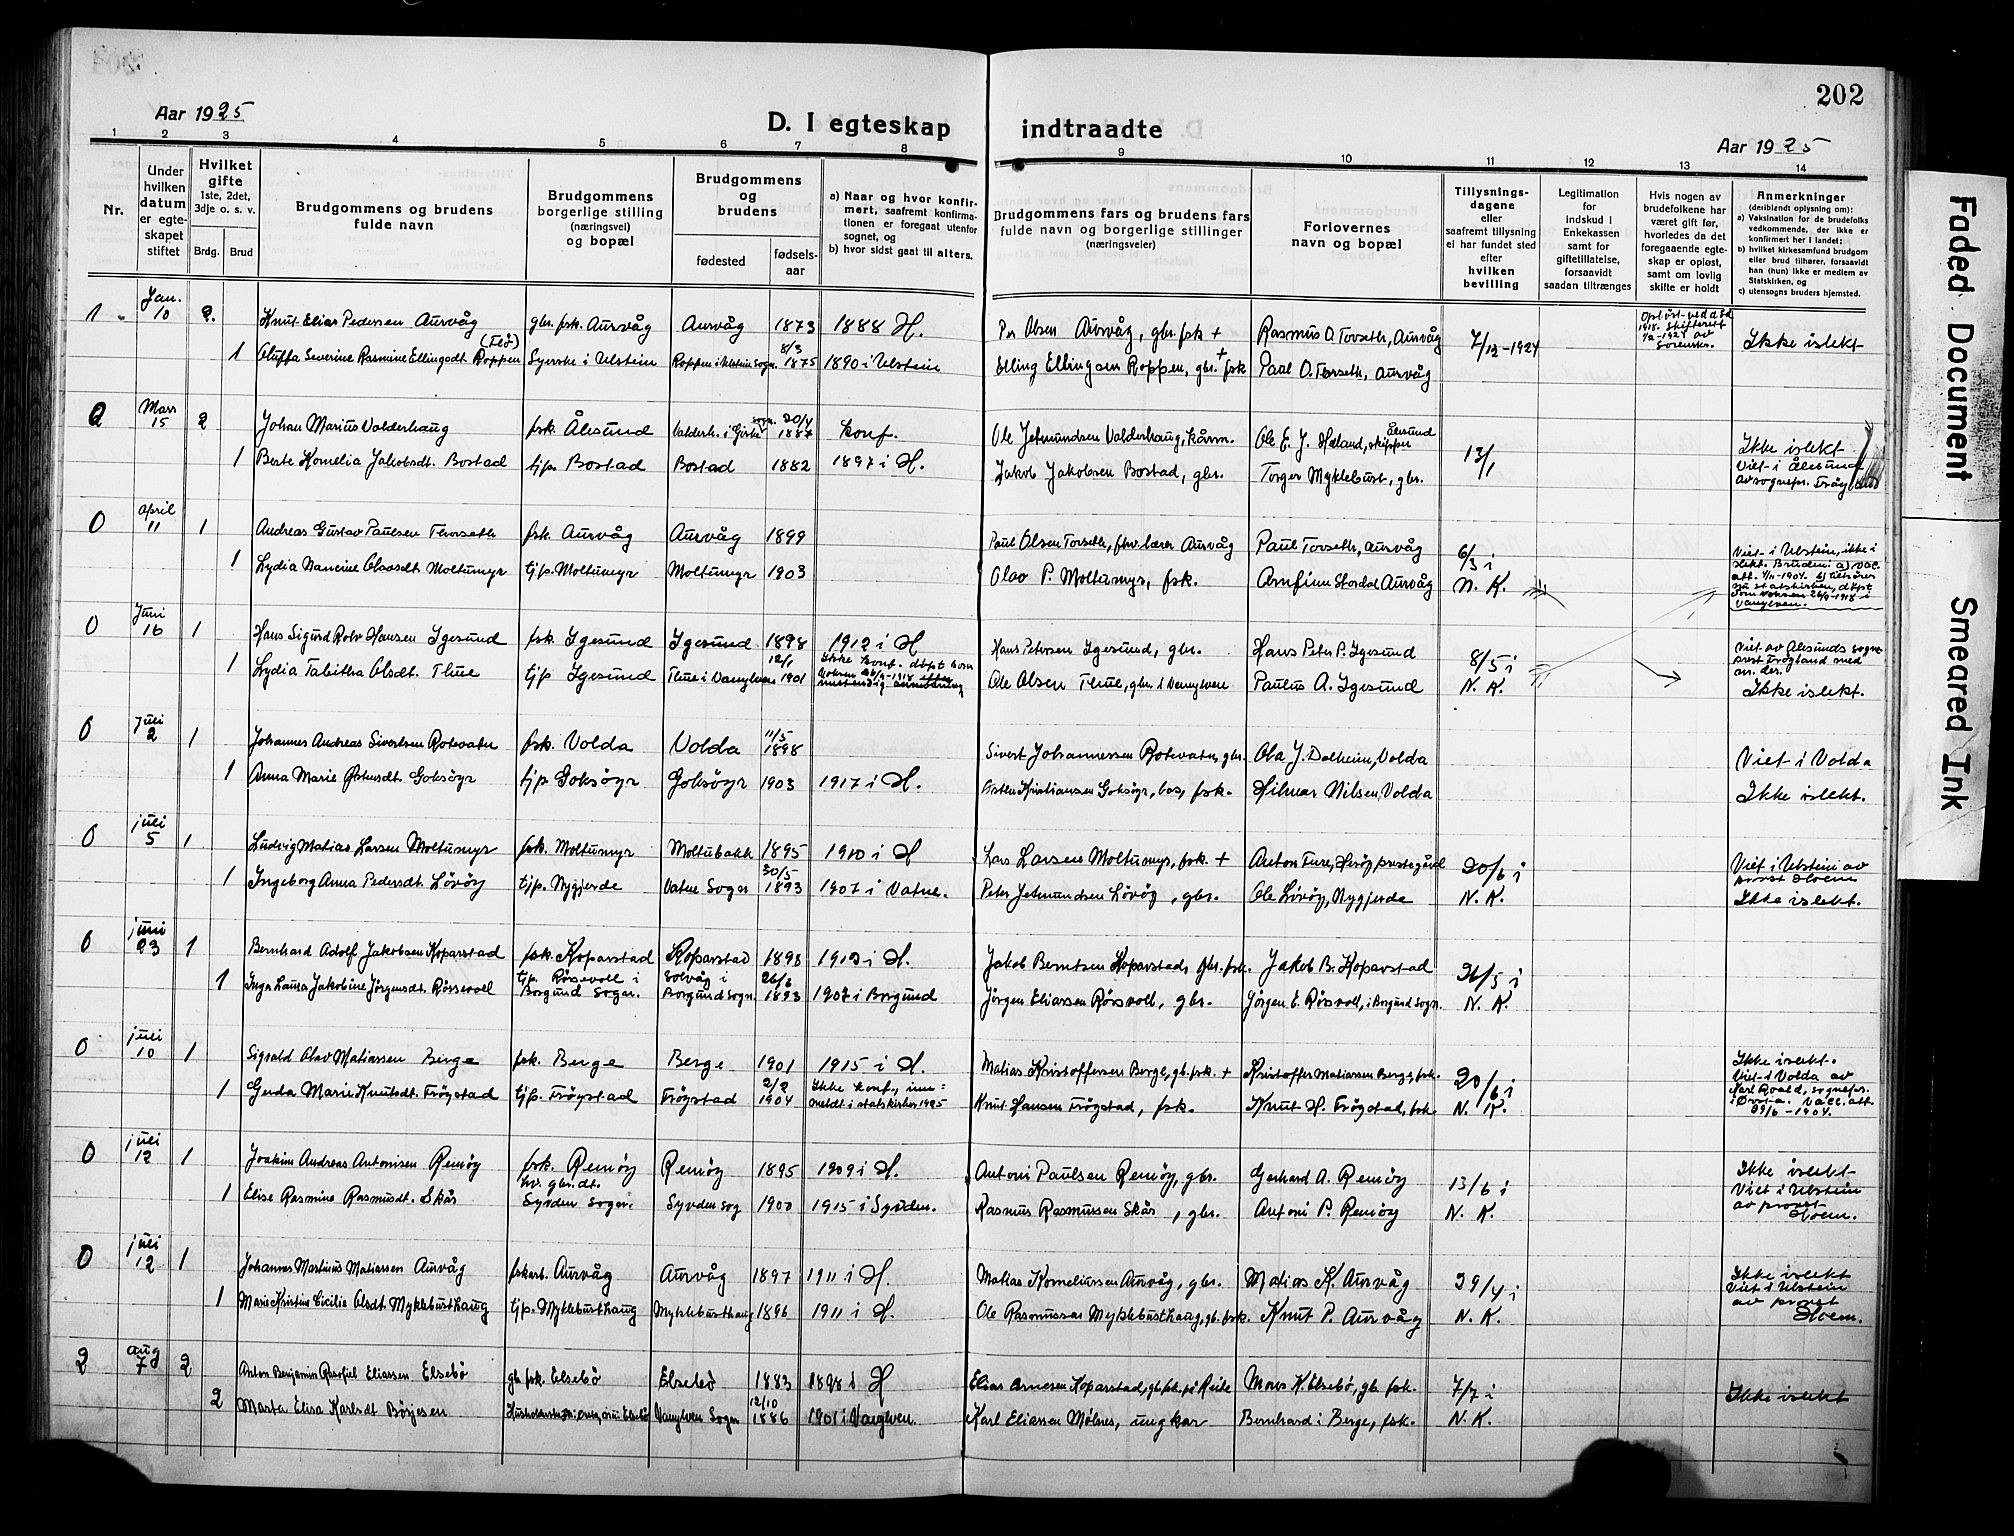 202
Aar 1925
D. I egteskap indtraadte
Aar 1925
1 2 3 4 5 6 7 8 9 10 11 12 13 14
Nr.
Under hvilken datum er egteskapet stiftet
Hvilket gifte 1ste, 2det, 3dje o. s. v.
Brdg. Brud
Brudgommens og brudens fulde navn
Brudgommens borgerlige stilling (næringsvei) og bopæl
Brudgommens og brudens
fødested
fødselsaar
a) Naar og hvor konfirmert, saafremt konfirmationen er foregaat utenfor sognet, og
b) hvor sidst gaat til alters.
Brudgommens fars og brudens fars fulde navn og borgerlige stillinger (næringsveier)
Forlovernes navn og bopæl
Tillysningsdagene eller saafremt tillysning ei har fundet sted efter hvilken bevilling
Legitimation for indskud i Enkekassen samt for giftetillatelse, forsaavidt saadan tiltrænges
Hvis nogen av brudefolkene har været gift før, hvorledes da det foregaaende egteskap er opløst, samt om lovlig skifte er holdt
Anmerkninger
(deriblandt oplysning om):
a) Vaksination for de brudefolks vedkommende, der ikke er konfirmert her i landet;
b) hvilket kirkesamfund brudgom eller brud tilhører, forsaavidt han (hun) ikke er medlem av Statskirken, og
c) utensogns bruders hjemsted.
1 Jan. 10 2 Knut Elias Pedersen Aurvåg gbr. fsk. Aurvåg Aurvåg 1873 1888 H. Per Olsen Aurvåg, gbr. fsk + Rasmus O. Torseth, Aurvåg 7/12-1924 Ikke i slekt
1 Oluffa Severine Rasmine Ellingsdt. Roppen Syerske i Ulstein Roppen i Ulstein sogn 8/3 1875 1890 i Ulstein Elling Ellingsen Roppen, gbr. + fsk Paul O. Torseth, Aurvåg
2 Mars 15 2 Johan Marius Valderhaug fsk. Ålesund Valderh. i Giske sogn 20/4 1887 konf. Ole Jetmundsen Valderhaug, kårm. Ole E. J. Heland, skipper Ålesund 13/1 Ikke i slekt
1 Berte Kornelia Jakobsdt. Bostad tjp. Bostad Bostad 1882 1897 i H. Jakob Jakobsen Bostad, gbr. Torger Myklebust, gbr. Viet i Ålesund av sognepr. Frøyland
0 April 11 1 Andreas Gustav Paulsen Thorseth fsk. Aurvåg Aurvåg 1899 Paul Olsen Torseth, fhv. lærer Aurvåg Paul Torseth, Aurvåg 6/3 i N. K.
1 Lydia Nancine Olavsdt. Moltumyr tjp. Moltumyr Moltumyr 1903 Olav P. Moltumyr, fsk. Arnfinn Stordal Aurvåg Viet i Ulstein, ikke i slekt. Bruden: a) vac. att. 4/11-1904. b) tilhører nu statskirken, døpt som voksen 26/9-1918 i Vanylven.
0 Juni 16 1 Hans Sigurd Rolv Hansen Igesund fsk. Igesund Igesund 1898 1912 i H Hans Petersen Igesund, gbr. Hans Peter P. Igesund 8/5 i N. K. Viet av Ålesunds sogneprest Frøyland
1 Lydia Tabitha Olsdt. Thue tjp Igesund Thue i Vanylven 12/1 1901 Ikke konf. døpt som voksen Ole Olsen Thue, gbr. i Vanylven Paulus A. Igesund Ikke i slekt.
0 Juli 2 1 Johannes Andreas Sivertsen Rotevatn fsk. Volda Volda 11/5 1898 Sivert Johannessen Rotevatn, gbr. Ola J. Dalheim, Volda Viet i Volda
1 Anna Marie Østensdt. Goksøyr tjp Goksøyr Goksøyr 1903 1917 i H. Østen Kristiansen Goksøyr, bos, fsk. Hilmar Nilsen, Volda Ikke i slekt.
0 juli 5 1 Ludvig Matias Larsen Moltumyr fsk. Moltumyr Moltubakk 1895 1910 i H Lars Larsen Moltumyr, fsk. + Anton Ture, Herøy prestegård 20/6 i N. K. Viet i Ulstein av prost Hoem
1 Ingeborg Anna Pedersdt. Løvøy tjp. Nygjerde Vatne Sogn 30/5 1893 1907 i Vatne. Peter Jetmundsen Løvøy, gbr. Ole Løvøy, Nygjerde Ikke i slekt.
0 juni 23 1 Bernhard Adolf Jakobsen Koparstad fsk. Koparstad Koparstad 1898 1912 i H. Jakob Berntsen Koparstad, gbr. fsk. Jakob B. Koparstad 26/5 i N. K.
1 Inga Laura Jakobine Jørgensdt. Røssevoll tjp. Røssevoll i Borgund Sogn. Solvåg i Borgund Sogn 26/6 1893 1907 i Borgund Jørgen Eliassen Røsvoll, gbr. Jørgen E. Røsvoll, i Borgund Sogn.
0 juli 10 1 Sigvald Olav Matiassen Berge fsk. Berge Berge 1901 1915 i H. Matias Kristoffersen Berge, gb. fsk. + Kristoffer Matiassen Berge, fsk. 20/6 i N. K. Ikke i slekt. Viet i Volda av Karl Roald, sognepr. i Ørsta. Vacc. att. 29/6-1904.
1 Gerda Marie Knutsdt. Frøystad tjp. Frøystad Frøystad 2/2 1904 Ikke konf., innmeldt i statskirken 1925 Knut Hansen Frøystad, fsk. Knut H. Frøystad, fsk.
0 juli 12 1 Joakim Andreas Antonisen Remøy fsk. Remøy Remøy 1895 1909 i H. Antoni Paulsen Remøy, gbr. Gerhard A. Remøy 13/6 i N. K. Ikke i slekt Viet i Ulstein av prost Hoem.
1 Elise Rasmine Rasmusdt. Skår hv. gbr. dt. Syvden Sogn. Syvden sog 1900 1915 i Syvden. Rasmus Rasmussen Skår, gbr. Antoni P. Remøy
0 juli 12 1 Johannes Martinus Matiassen Aurvåg fskarb. Aurvåg Aurvåg 1897 1911 i H. Matias Korneliussen Aurvåg, gbr. Matias K. Aurvåg 29/4 i N. K. Ikke i slekt Viet i Ulstein av prost Hoem.
1 Marie Kristine Cicilie Olsdt. Myklebusthaug tjp. Myklebusthaug Myklebusthaug 1896 1911 i H. Ole Rasmussen Myklebusthaug, gb. fsk. Knut P. Aurvåg
2 aug 7 2 Anton Benjamin Rasfiel Eliassen Elsebø gb. fsk. Elsebø Elsebø 1883 1898 i H Elias Arnesen Koparstad, gb. fsk. på Reite Mons K. Elsebø, gb. fsk. 7/7 i N. K. Ikke i slekt
2 Marta Elisa Karlsdt Børjesen Vanylven Sogn 12/10 1886 1901 i Vanylven. Karl Eliassen Mølnes, ungkar Bernhard i Berge, fsk.
Faded Document
Smeared Ink